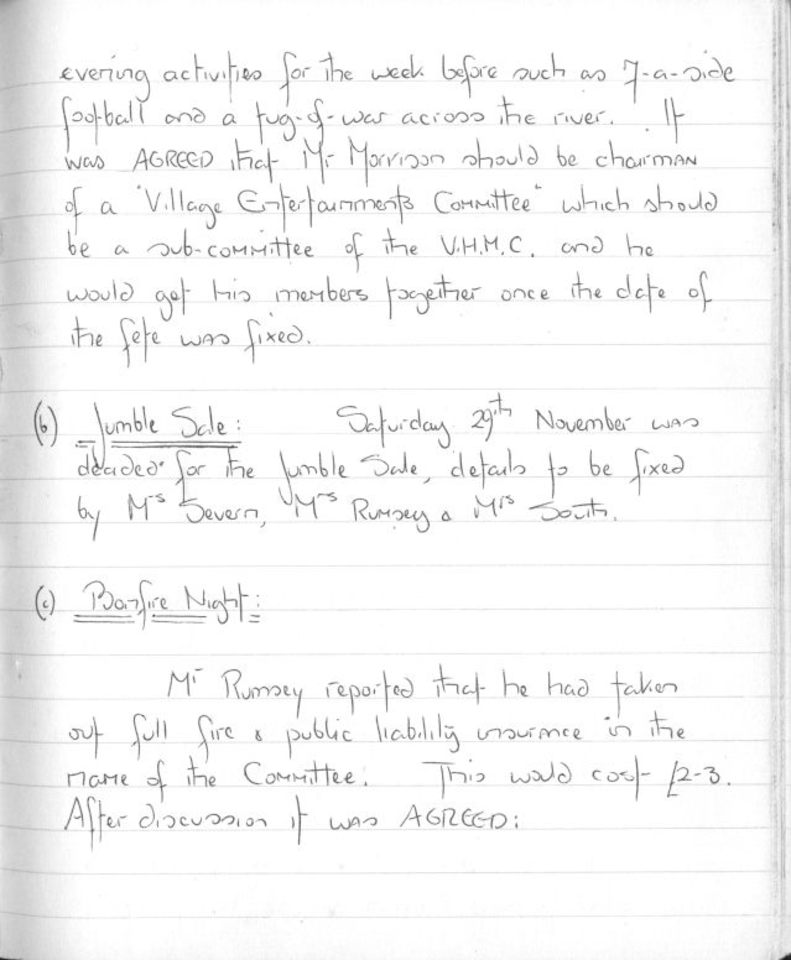 evening activities for the week before such as 7-a-side
football and a tug-of-war across the river. It
was AGREED that Mr Morrison should be chairman
of a "Village Entertainments Committee" which should
be a sub-committee of the V.H.M.C. and he
would get his members together once the date of
the fete was fixed.
(b) Jumble Sale: Saturday 29th November was
decided for the Jumble Sale, details to be fixed
by Mrs Severn, Mrs Rumsey & Mrs South.
(c) Bonfire Night:
Mr Rumsey reported that he had taken
out full fire & public liability insurance in the
name of the Committee. This would cost £2-3.
After discussion it was AGREED: